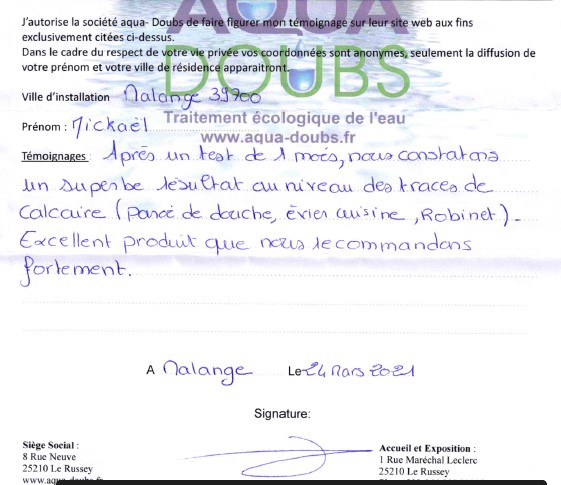 AQUA
DOUBS
J'autorise la société aqua- Doubs de faire figurer mon témoignage sur leur site web aux fins
exclusivement citées ci-dessus.
Dans le cadre du respect de votre vie privée vos coordonnées sont anonymes, seulement la diffusion de
votre prénom et votre ville de résidence apparaitront.
Ville d'installation Malange 39700
Traitement écologique de l'eau
Prénom : Mickaël
www.aqua-doubs.fr
Témoignages : Après un test de 1 mois, nous constatons
un superbe résultat au niveau des traces de
calcaire (paroi de douche, évier cuisine, Robinet).
Excellent produit que nous recommandons
fortement.
A Malange Le 24 Mars 2021
Signature:
Siège Social :
8 Rue Neuve
25210 Le Russey
www.aqua-doubs.fr
Accueil et Exposition :
1 Rue Maréchal Leclerc
25210 Le Russey